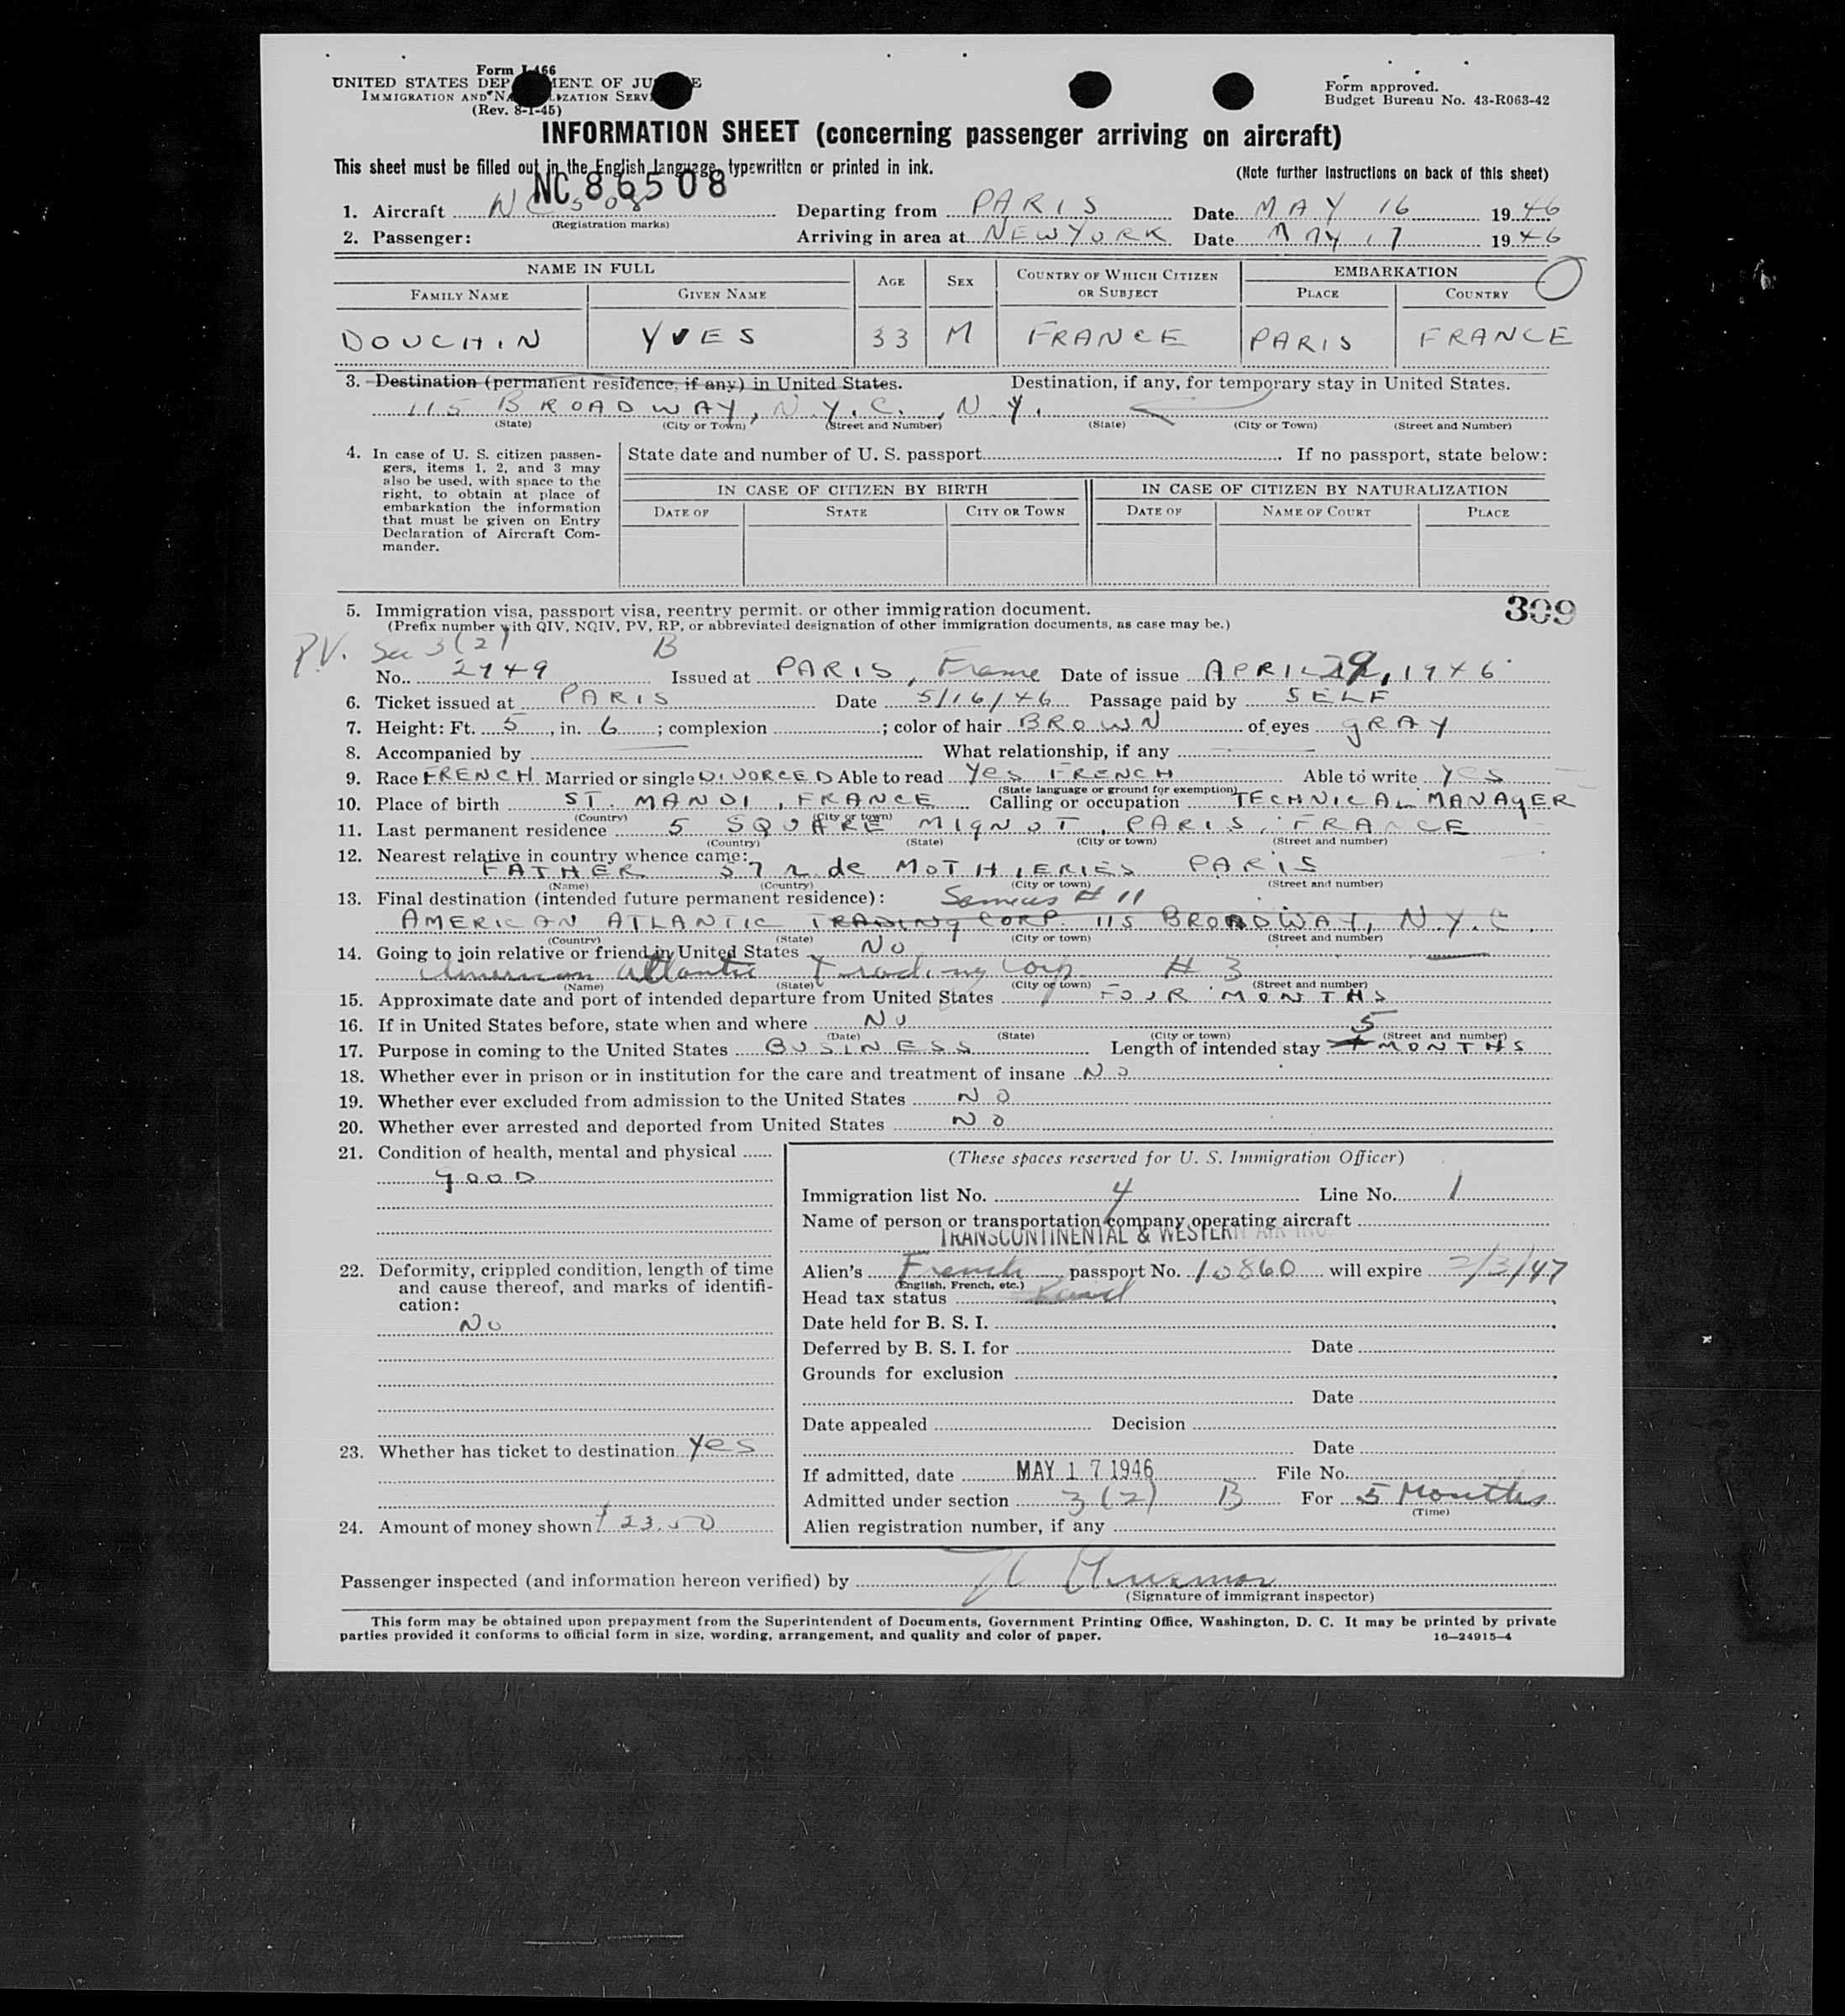 Form I-466
UNITED STATES DEPARTMENT OF JUSTICE
IMMIGRATION AND NATURALIZATION SERVICE
(Rev. 8-1-45)
Form approved.
Budget Bureau No. 43-R063-42
INFORMATION SHEET (concerning passenger arriving on aircraft)
This sheet must be filled out in the English language, typewritten or printed in ink. (Note further instructions on back of this sheet)
NC 86508
1. Aircraft NC 508 Departing from PARIS Date MAY 16 1946
(Registration marks)
2. Passenger: Arriving in area at NEW YORK Date MAY 17 1946
NAME IN FULL AGE SEX COUNTRY OF WHICH CITIZEN OR SUBJECT EMBARKATION
FAMILY NAME GIVEN NAME PLACE COUNTRY
DOUCHIN YVES 33 M FRANCE PARIS FRANCE
3. Destination (permanent residence, if any) in United States. Destination, if any, for temporary stay in United States.
115 BROADWAY, N.Y.C., N.Y.
(State) (City or Town) (Street and Number) (State) (City or Town) (Street and Number)
4. In case of U. S. citizen passengers, items 1, 2, and 3 may also be used, with space to the right, to obtain at place of embarkation the information that must be given on Entry Declaration of Aircraft Commander.
State date and number of U. S. passport If no passport, state below:
IN CASE OF CITIZEN BY BIRTH IN CASE OF CITIZEN BY NATURALIZATION
DATE OF STATE CITY OR TOWN DATE OF NAME OF COURT PLACE
5. Immigration visa, passport visa, reentry permit, or other immigration document. 309
(Prefix number with QIV, NQIV, PV, RP, or abbreviated designation of other immigration documents, as case may be.)
P.V. Sec 3(2) B
No. 2949 Issued at PARIS, France Date of issue APRIL 29, 1946
6. Ticket issued at PARIS Date 5/16/46 Passage paid by SELF
7. Height: Ft. 5, in. 6; complexion ; color of hair BROWN of eyes GRAY
8. Accompanied by What relationship, if any
9. Race FRENCH Married or single DIVORCED Able to read Yes FRENCH Able to write YES
(State language or ground for exemption)
10. Place of birth ST. MANDI, FRANCE Calling or occupation TECHNICAL MANAGER
(Country) (City or town)
11. Last permanent residence 5 SQUARE MIGNOT, PARIS, FRANCE
(Country) (State) (City or town) (Street and number)
12. Nearest relative in country whence came:
FATHER 57 r de MOTHIERIES PARIS
(Name) (Country) (City or town) (Street and number)
13. Final destination (intended future permanent residence): Same as # 11
AMERICAN ATLANTIC TRADING CORP. 115 BROADWAY, N.Y.C.
(Country) (State) (City or town) (Street and number)
14. Going to join relative or friend in United States No
American Atlantic Trading Corp # 3
(Name) (State) (City or town) (Street and number)
15. Approximate date and port of intended departure from United States FOUR MONTHS
16. If in United States before, state when and where NO
(Date) (State) (City or town) (Street and number)
17. Purpose in coming to the United States BUSINESS Length of intended stay 5 MONTHS
18. Whether ever in prison or in institution for the care and treatment of insane NO
19. Whether ever excluded from admission to the United States NO
20. Whether ever arrested and deported from United States NO
21. Condition of health, mental and physical
GOOD
22. Deformity, crippled condition, length of time and cause thereof, and marks of identification:
NO
23. Whether has ticket to destination Yes
24. Amount of money shown $ 23.50
(These spaces reserved for U. S. Immigration Officer)
Immigration list No. 4 Line No. 1
Name of person or transportation company operating aircraft
TRANSCONTINENTAL & WESTERN AIR INC.
Alien's French passport No. 10860 will expire 2/3/47
(English, French, etc.)
Head tax status
Date held for B. S. I.
Deferred by B. S. I. for Date
Grounds for exclusion
Date
Date appealed Decision
Date
If admitted, date MAY 17 1946 File No.
Admitted under section 3(2) B For 5 Months
(Time)
Alien registration number, if any
Passenger inspected (and information hereon verified) by
(Signature of immigrant inspector)
This form may be obtained upon prepayment from the Superintendent of Documents, Government Printing Office, Washington, D. C. It may be printed by private
parties provided it conforms to official form in size, wording, arrangement, and quality and color of paper. 16—24915-4